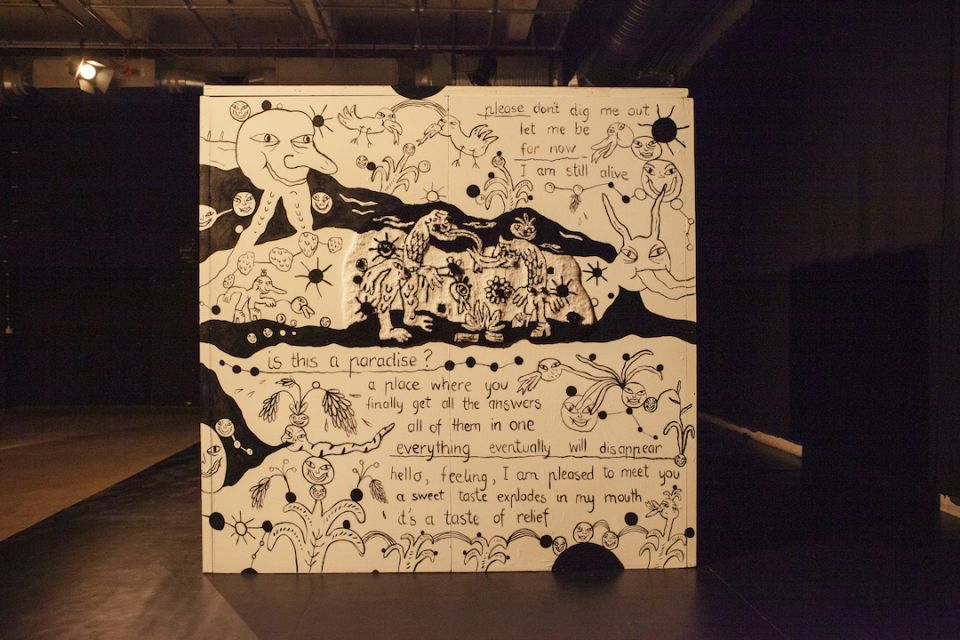 please don't dig me out
let me be
for now
I am still alive
is this a paradise?
a place where you
finally get all the answers
all of them in one
everything eventually will disappear
hello, feeling, I am pleased to meet you
a sweet taste explodes in my mouth
it's a taste of relief